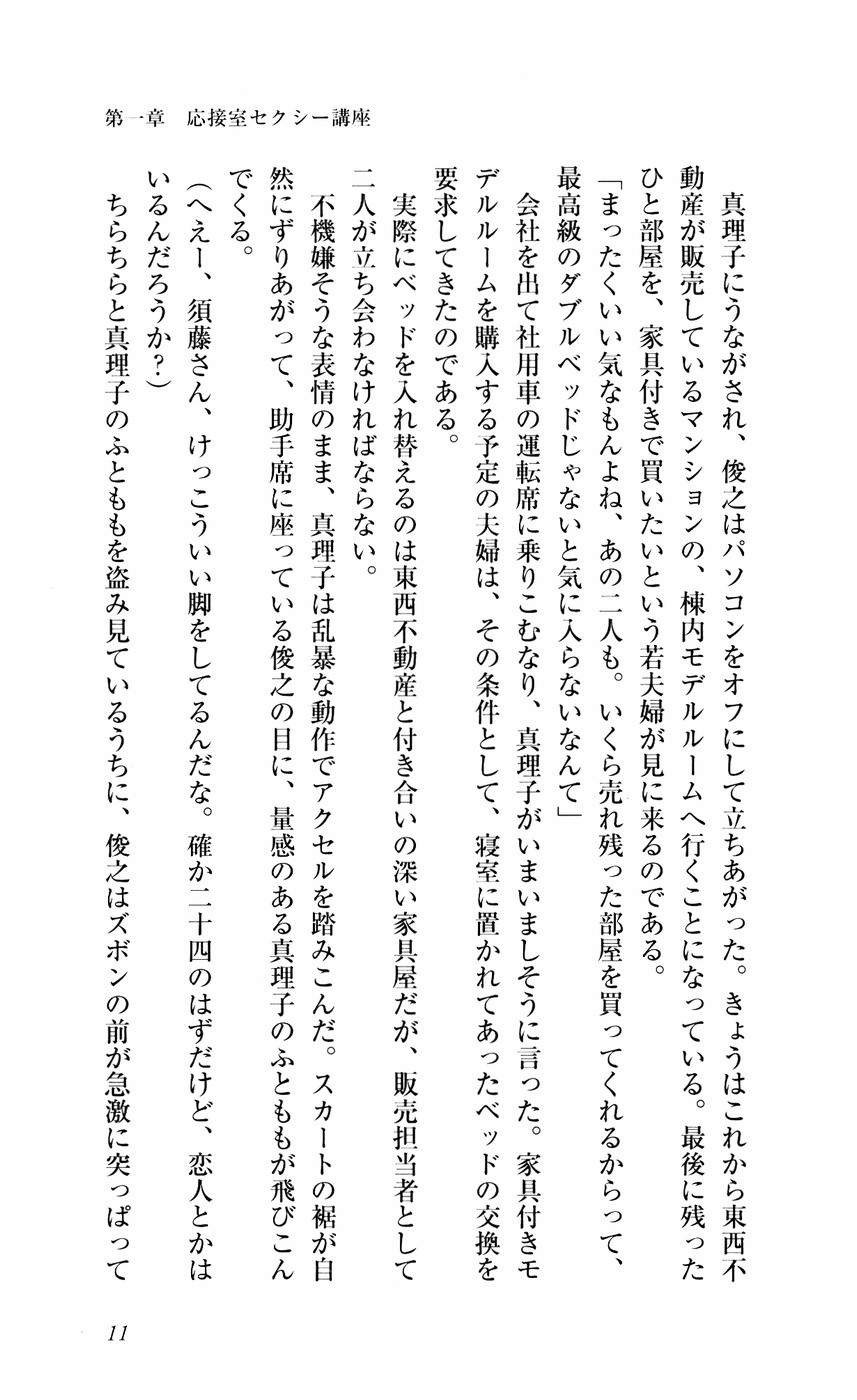 第一章　応接室セクシー講座
　真理子にうながされ、俊之はパソコンをオフにして立ちあがった。きょうはこれから東西不
動産が販売しているマンションの、棟内モデルルームへ行くことになっている。最後に残った
ひと部屋を、家具付きで買いたいという若夫婦が見に来るのである。
「まったくいい気なもんよね、あの二人も。いくら売れ残った部屋を買ってくれるからって、
最高級のダブルベッドじゃないと気に入らないなんて」
　会社を出て社用車の運転席に乗りこむなり、真理子がいまいましそうに言った。家具付きモ
デルルームを購入する予定の夫婦は、その条件として、寝室に置かれてあったベッドの交換を
要求してきたのである。
　実際にベッドを入れ替えるのは東西不動産と付き合いの深い家具屋だが、販売担当者として
二人が立ち会わなければならない。
　不機嫌そうな表情のまま、真理子は乱暴な動作でアクセルを踏みこんだ。スカートの裾が自
然にずりあがって、助手席に座っている俊之の目に、量感のある真理子のふとももが飛びこん
でくる。
（へえー、須藤さん、けっこういい脚をしてるんだな。確か二十四のはずだけど、恋人とかは
いるんだろうか？）
　ちらちらと真理子のふとももを盗み見ているうちに、俊之はズボンの前が急激に突っぱって
11